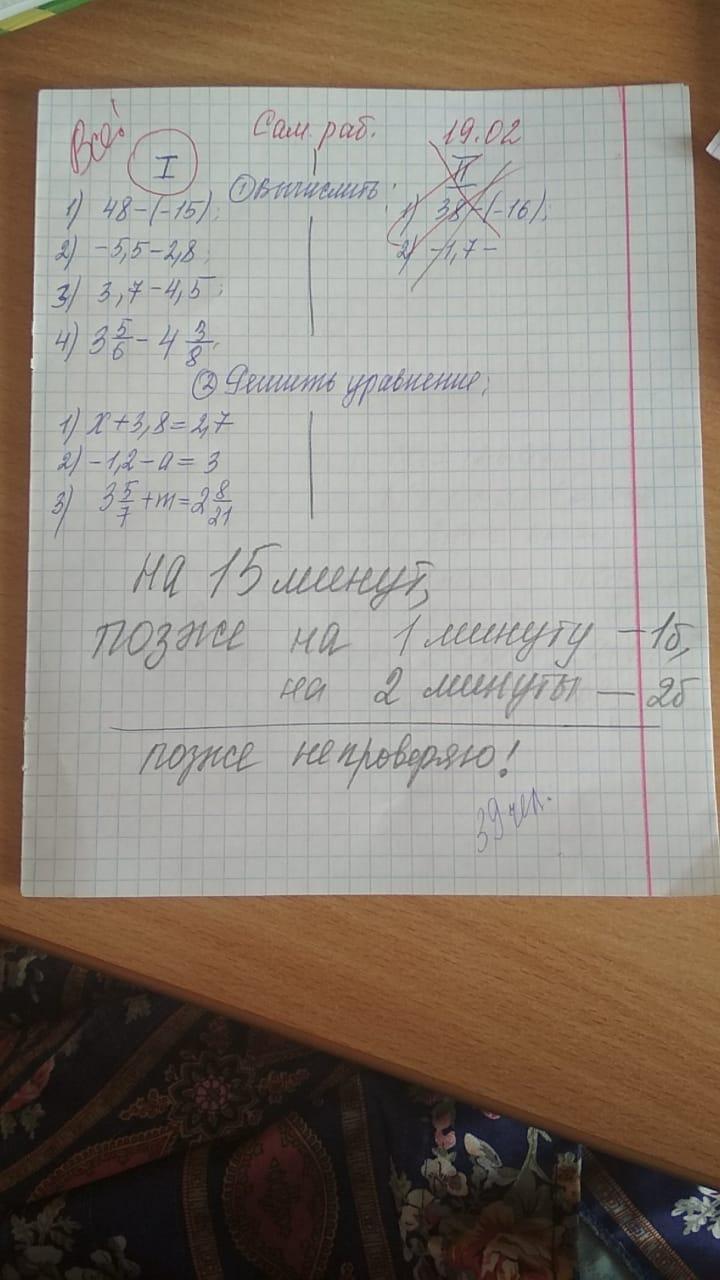 Все! Сам. раб. 19.02
I II
① Вычислить:
1) 48-(-15); 1) 38-(-16);
2) -5,5-2,8; 2) -1,7-
3) 3,7-4,5;
4) 3 5/6 - 4 3/8;
② Решить уравнение;
1) x+3,8=2,7
2) -1,2-a=3
3) 3 5/7 +m=2 8/21
на 15 минут,
позже на 1 минуту -1б,
на 2 минуты - 2б
позже не проверяю!
39 чел.